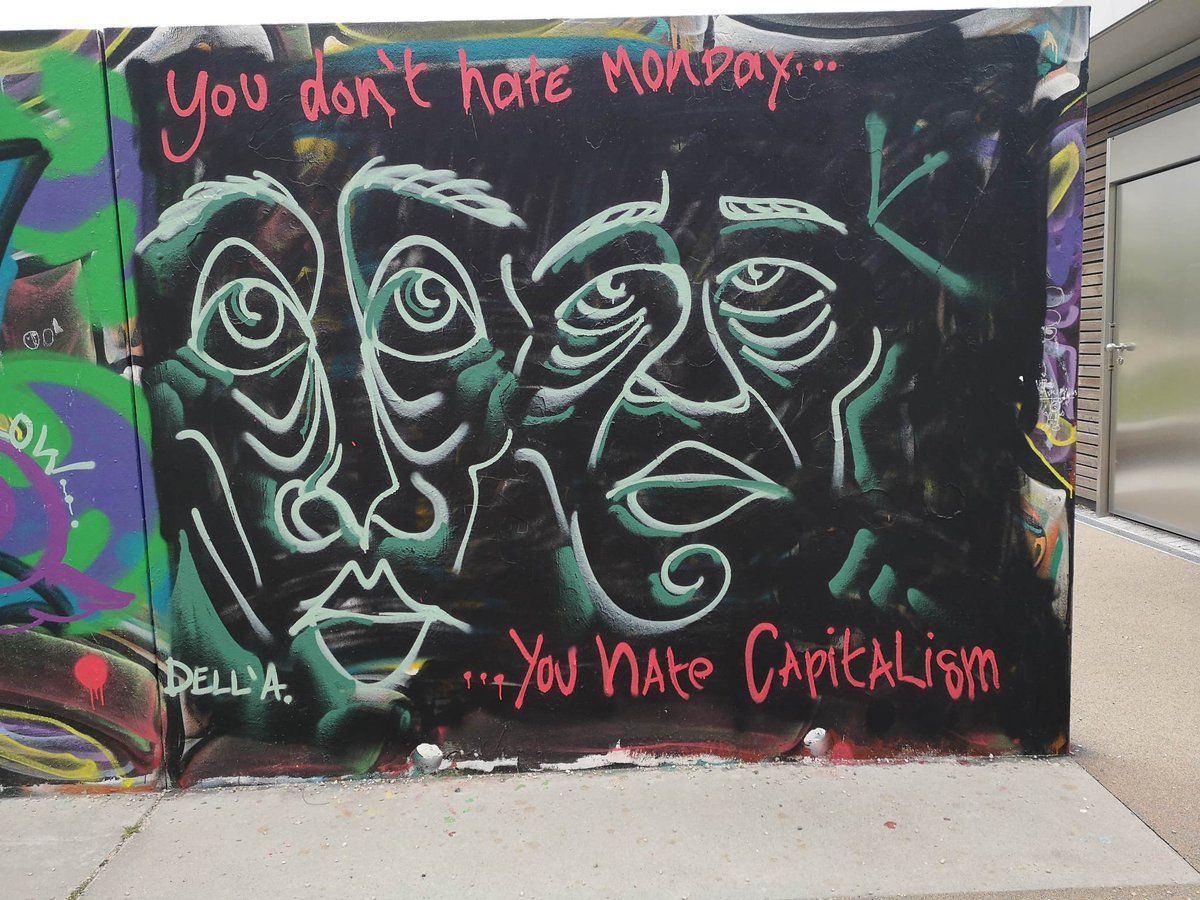 You don't hate Monday...
DELL'A.
...You hate Capitalism